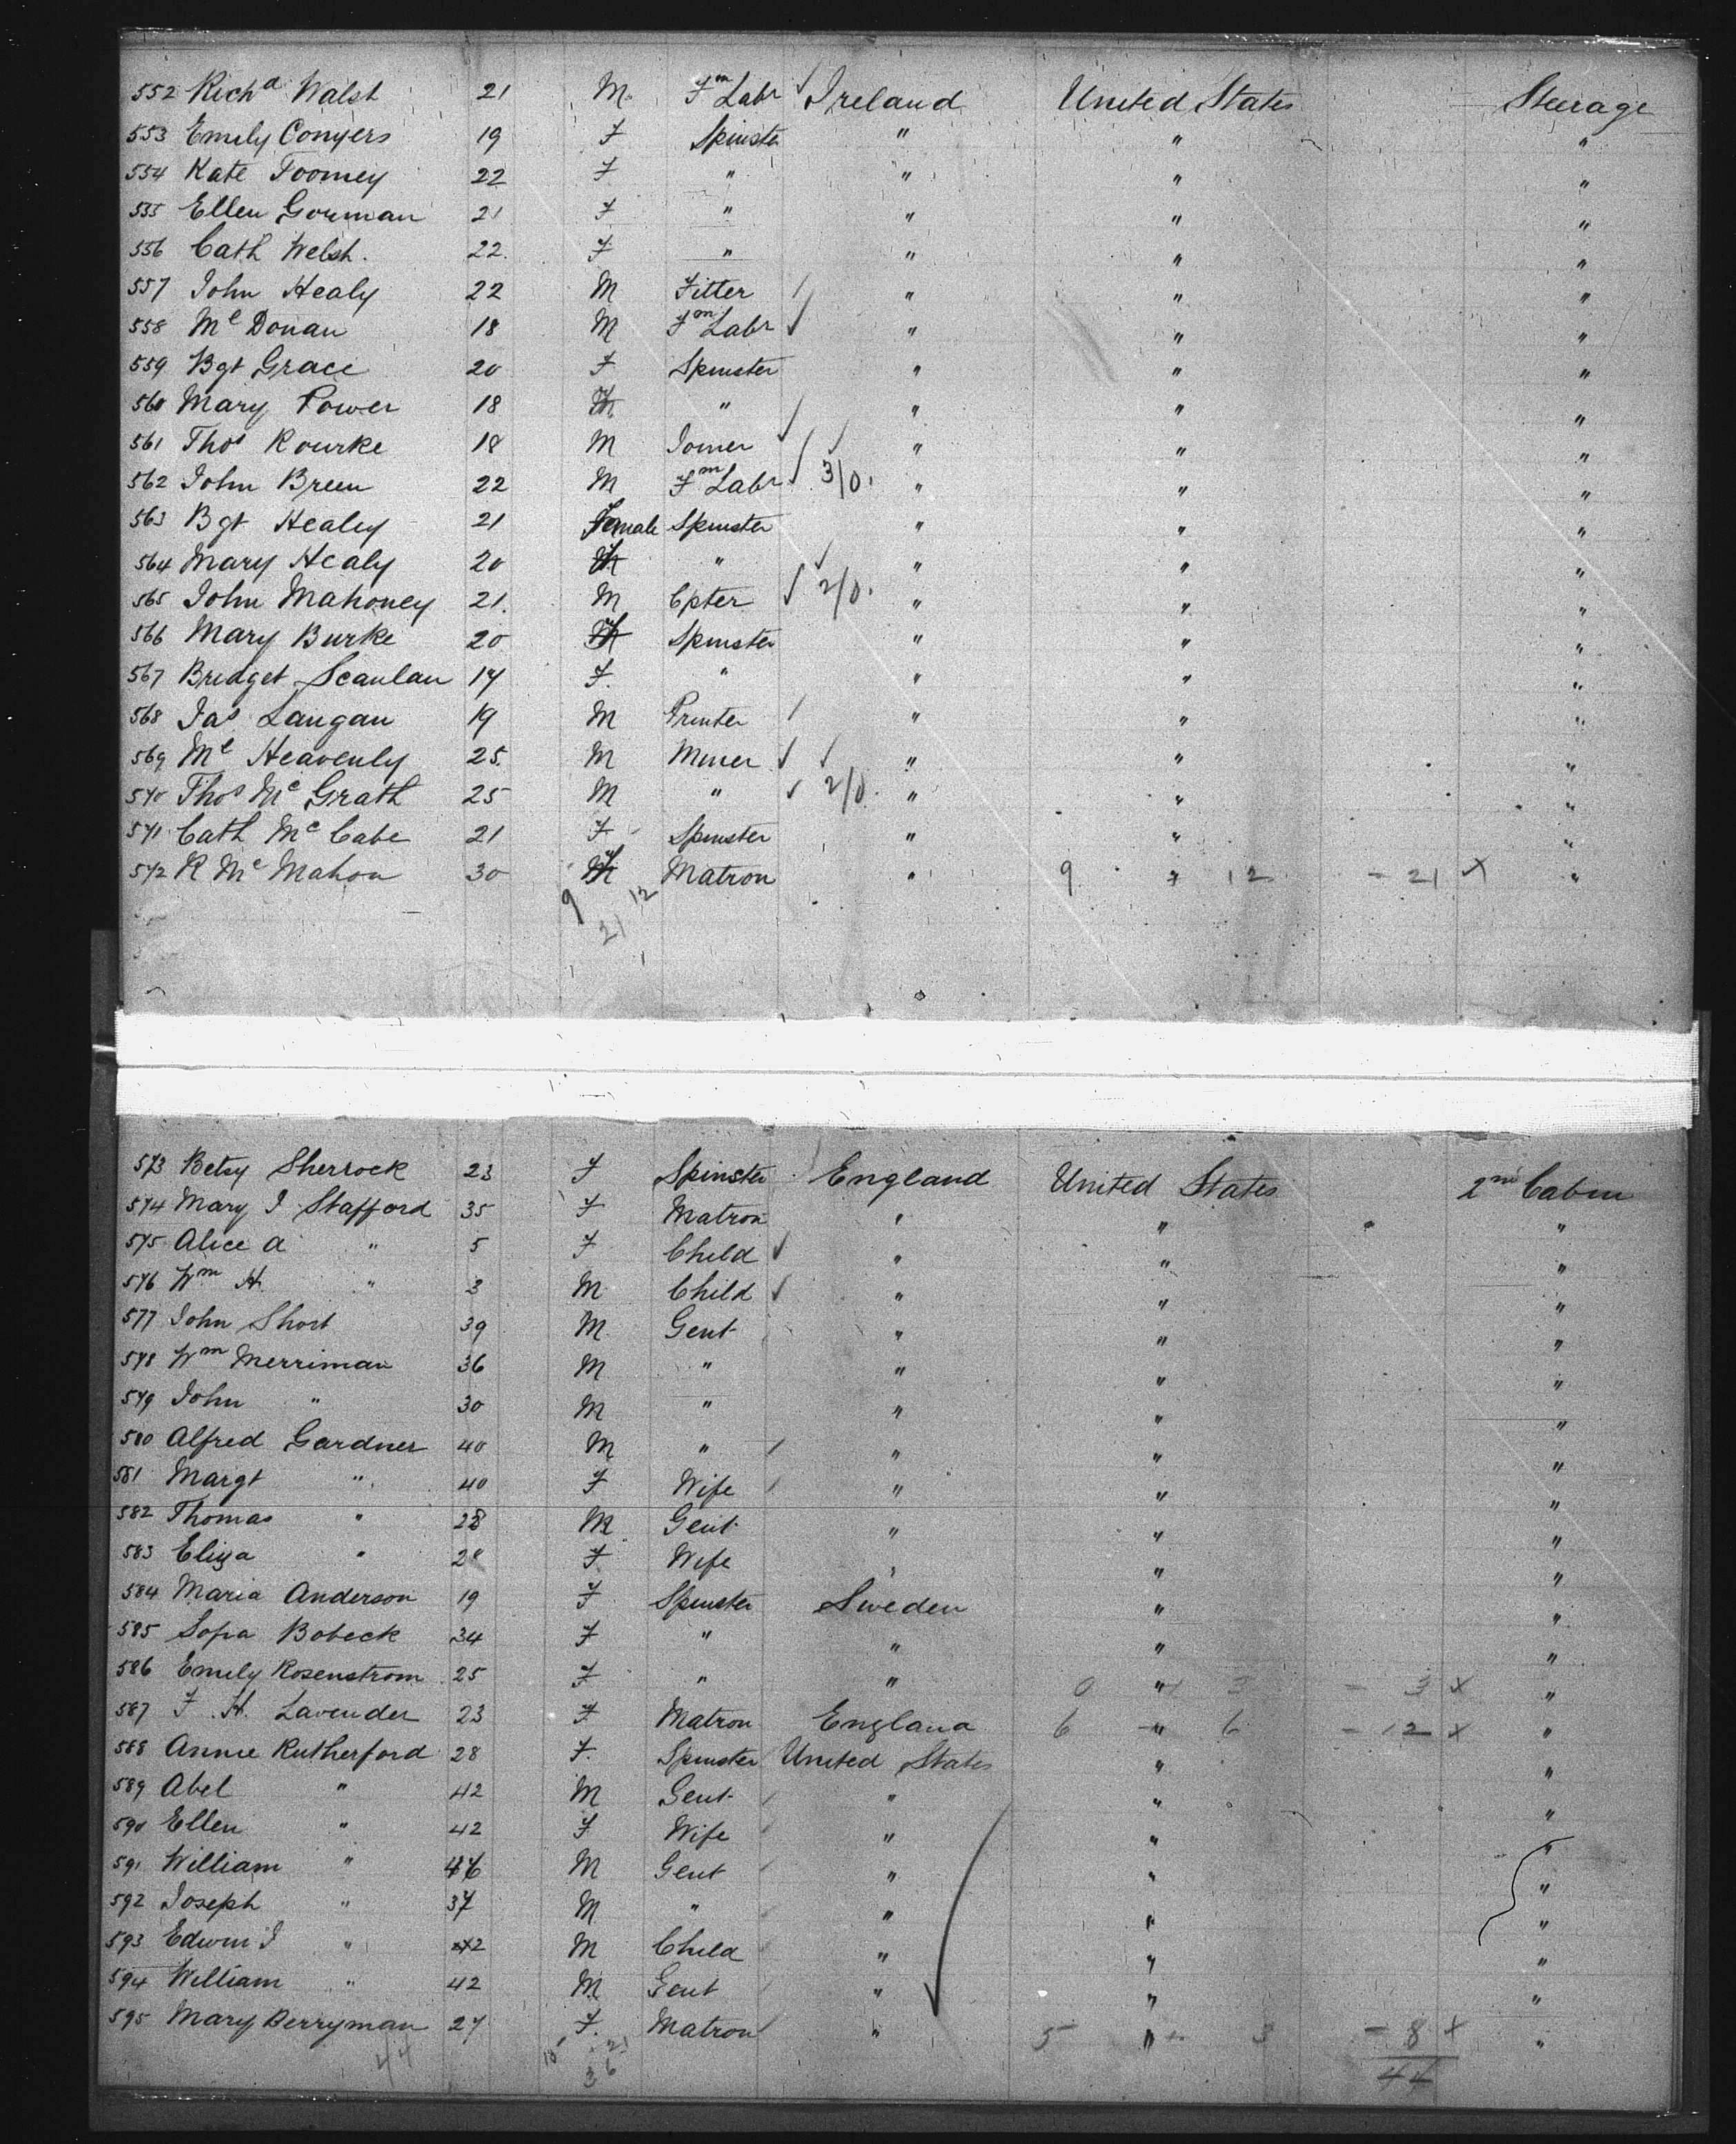 552 Rich^d Walsh 21 M F^m Lab^r Ireland United States Steerage
553 Emily Conyers 19 F Spinster " " "
554 Kate Toomey 22 F " " " "
555 Ellen Gorman 21 F " " " "
556 Cath Welsh. 22. F " " " "
557 John Healy 22 M Fitter " " "
558 M^l Donan 18 M F^m Lab^r " " "
559 Bgt Grace 20 F Spinster " " "
560 Mary Power 18 F " " " "
561 Tho^s Rourke 18 M Joiner " " "
562 John Breen 22 M F^m Lab^r 3/0. " " "
563 Bgt Healey 21 Female Spinster " " "
564 Mary Healy 20 F " " " "
565 John Mahoney 21. M Cpter 2/0. " " "
566 Mary Burke 20 F Spinster " " "
567 Bridget Scanlan 17 F. " " " "
568 Ja^s Langan 19 M Printer " " "
569 M^l Heavenly 25. M Miner " " "
570 Tho^s M^c Grath 25 M " 2/0. " " "
571 Cath M^c Cabe 21 F Spinster " " "
572 R M^c Mahon 30 F Matron " 9 " 12 - 21 x "
9 12
21
573 Betsy Sherrock 23 F Spinster England United States 2^nd Cabin
574 Mary J Stafford 35 F Matron " " "
575 Alice A " 5 F Child " " "
576 W^m H. " 3 M Child " " "
577 John Short 39 M Gent " " "
578 W^m Merriman 36 M " " " "
579 John " 30 M " " " "
580 Alfred Gardner 40 M " " " "
581 Margt " 40 F Wife " " "
582 Thomas " 28 M Gent " " "
583 Eliza " 28 F Wife " " "
584 Maria Anderson 19 F Spinster Sweden " "
585 Sofia Bobeck 34 F " " " "
586 Emily Rosenstrom 25 F " " 0 " 3 - 3 x "
587 F. H. Lavender 23 F Matron England 6 " 6 - 12 x "
588 Annie Rutherford 28 F. Spinster United States " "
589 Abel " 42 M Gent " " "
590 Ellen " 42 F Wife " " "
591 William " 46 M Gent " " "
592 Joseph " 37 M " " " "
593 Edwin J " 2 M Child " " "
594 William " 42 M Gent " " "
595 Mary Berryman 27 F. Matron " 5 " 3 - 8 x "
44 15 21 44
36